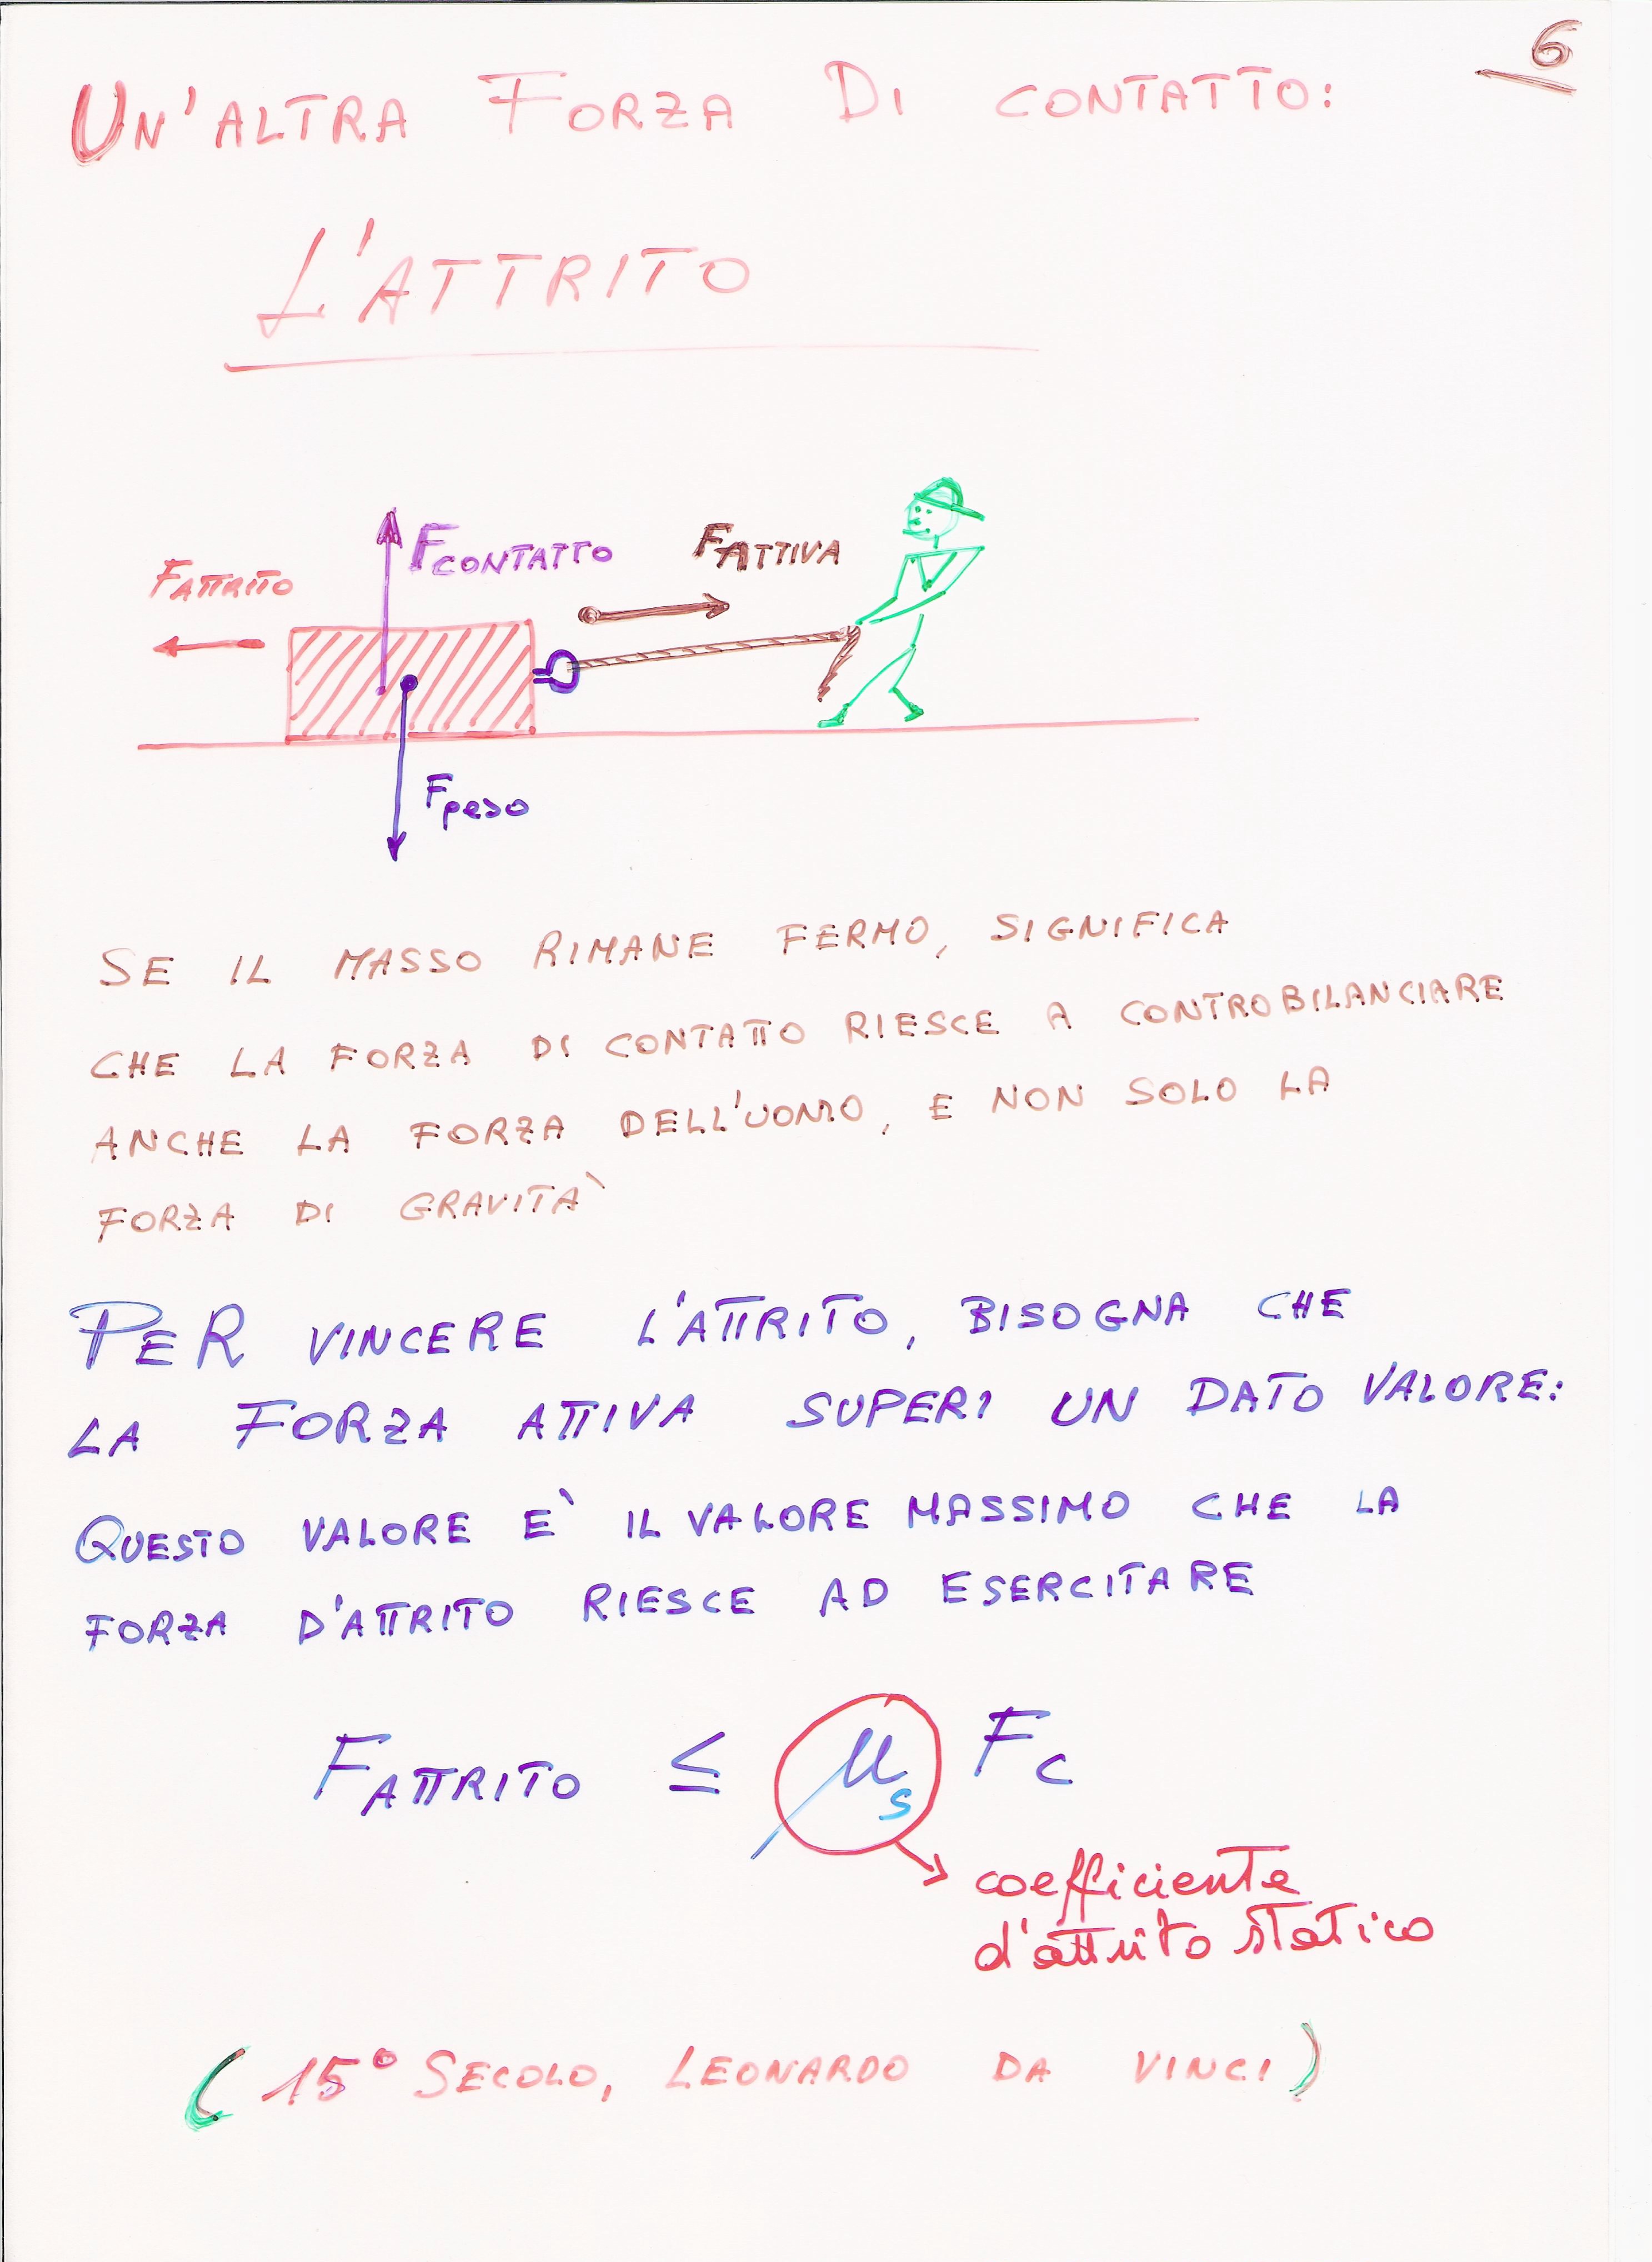 6
UN'ALTRA FORZA DI CONTATTO:
L'ATTRITO
FATTRITO
FCONTATTO
FATTIVA
Fpeso
SE IL MASSO RIMANE FERMO, SIGNIFICA
CHE LA FORZA DI CONTATTO RIESCE A CONTROBILANCIARE
ANCHE LA FORZA DELL'UOMO, E NON SOLO LA
FORZA DI GRAVITA`
PER VINCERE L'ATTRITO, BISOGNA CHE
LA FORZA ATTIVA SUPERI UN DATO VALORE:
QUESTO VALORE E` IL VALORE MASSIMO CHE LA
FORZA D'ATTRITO RIESCE AD ESERCITARE
FATTRITO ≤ μs Fc
coefficiente
d'attrito statico
(15° SECOLO, LEONARDO DA VINCI)